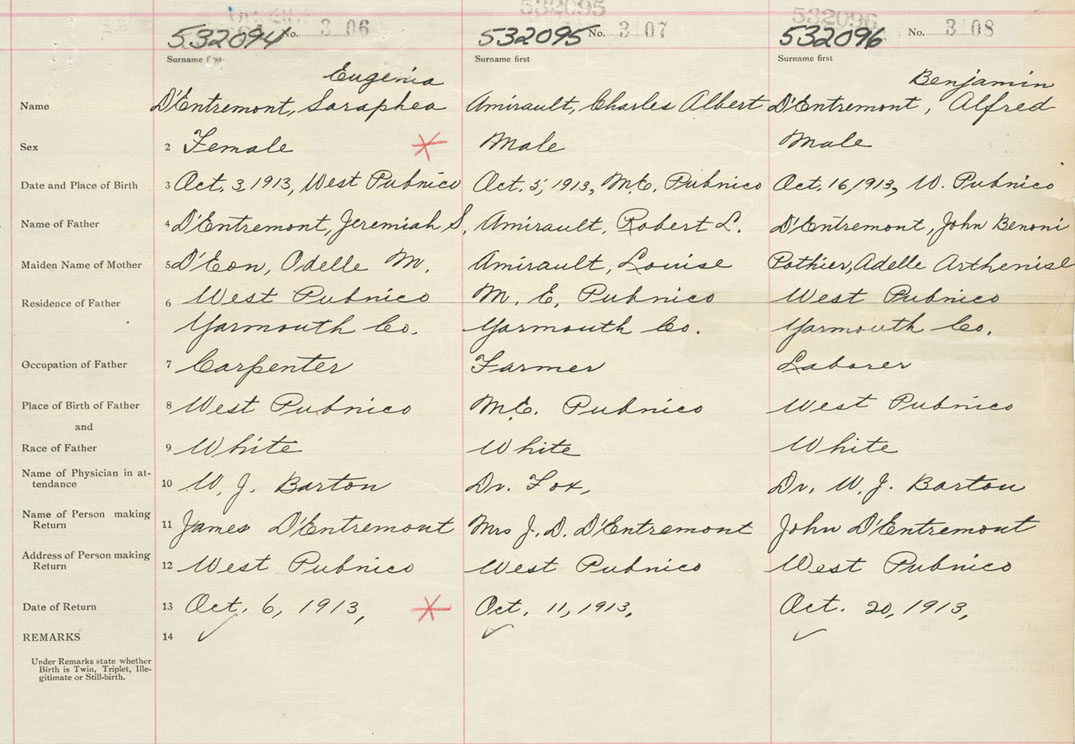 532095 532096
532094 No. 3 06 532095 No. 3 07 532096 No. 3 08
Surname first Surname first Surname first
Eugenia Benjamin
Name D'Entremont, Saraphea Amirault, Charles Albert D'Entremont, Alfred
Sex 2 Female Male Male
Date and Place of Birth 3 Oct. 3, 1913, West Pubnico Oct. 5, 1913, M.E. Pubnico Oct. 16, 1913, W. Pubnico
Name of Father 4 D'Entremont, Jeremiah S. Amirault, Robert L. D'Entremont, John Benoni
Maiden Name of Mother 5 D'Eon, Odelle M. Amirault, Louise Pothier, Adelle Arthenise
Residence of Father 6 West Pubnico M. E. Pubnico West Pubnico
Yarmouth Co. Yarmouth Co. Yarmouth Co.
Occupation of Father 7 Carpenter Farmer Laborer
Place of Birth of Father 8 West Pubnico M.E. Pubnico West Pubnico
and
Race of Father 9 White White White
Name of Physician in at-
tendance 10 W. J. Barton Dr. Fox, Dr. W. J. Barton
Name of Person making
Return 11 James D'Entremont Mrs J. D. D'Entremont John D'Entremont
Address of Person making
Return 12 West Pubnico West Pubnico West Pubnico
Date of Return 13 Oct. 6, 1913, Oct. 11, 1913, Oct. 20, 1913,
REMARKS 14
Under Remarks state whether
Birth is Twin, Triplet, Ille-
gitimate or Still-birth.